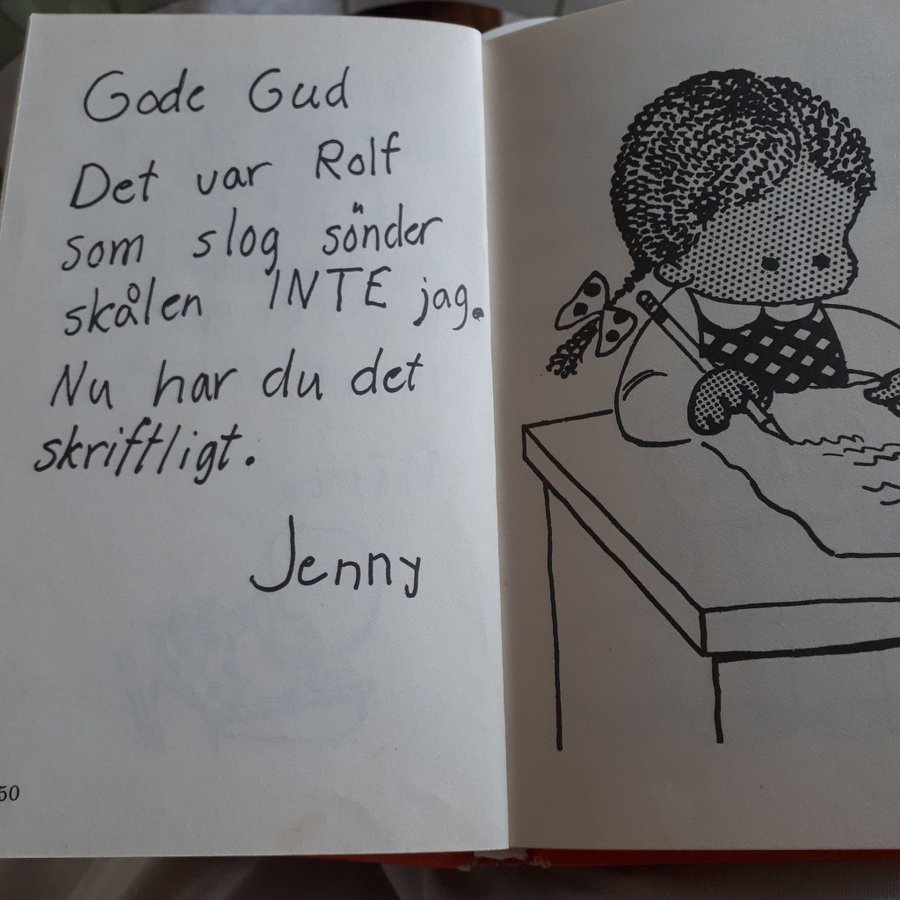 Gode Gud
Det var Rolf
som slog sönder
skålen INTE jag.
Nu har du det
skriftligt.
Jenny
50